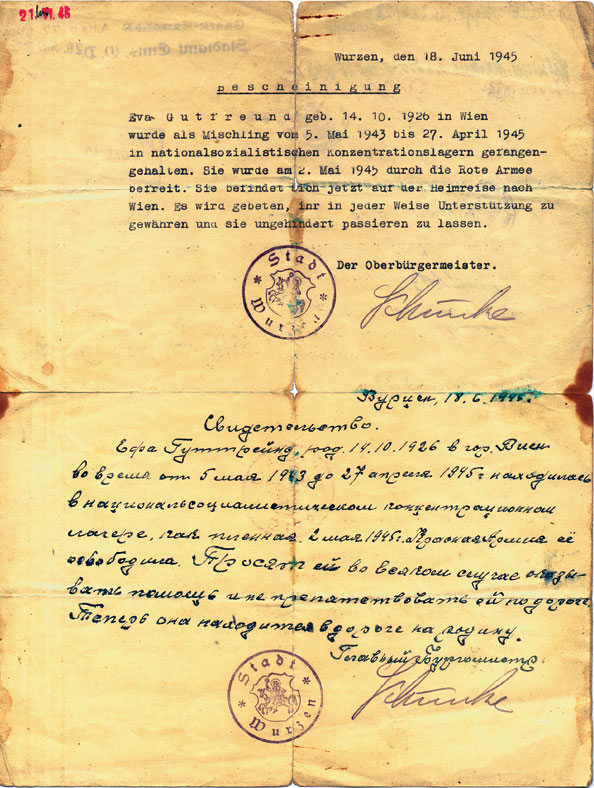 Wurzen, den 18. Juni 1945
Bescheinigung
Eva Gutfreund geb. 14. 10. 1926 in Wien
wurde als Mischling vom 5. Mai 1943 bis 27. April 1945
in nationalsozialistischen Konzentrationslagern gefangen-
gehalten. Sie wurde am 2. Mai 1945 durch die Rote Armee
befreit. Sie befindet sich jetzt auf der Heimreise nach
Wien. Es wird gebeten, ihr in jeder Weise Unterstützung zu
gewähren und sie ungehindert passieren zu lassen.
Der Oberbürgermeister.
Stadt
Wurzen
Schunke
Вурцен, 18.6.1945.
Свидетельство.
Ефа Гуттрейнд, род. 14.10.1926 в гор. Виен
во время от 5 мая 1943 до 27 апреля 1945 г находилась
в национальсоциалистическом концентрационном
лагере, как пленная. 2 мая 1945г. Красная Армия её
освободила. Просят ей во всяком случае оказы-
вать помощь и не препятствовать ей по дороге.
Теперь она находится в дороге на родину.
Главный Бургомистр
Stadt
Wurzen
Schunke